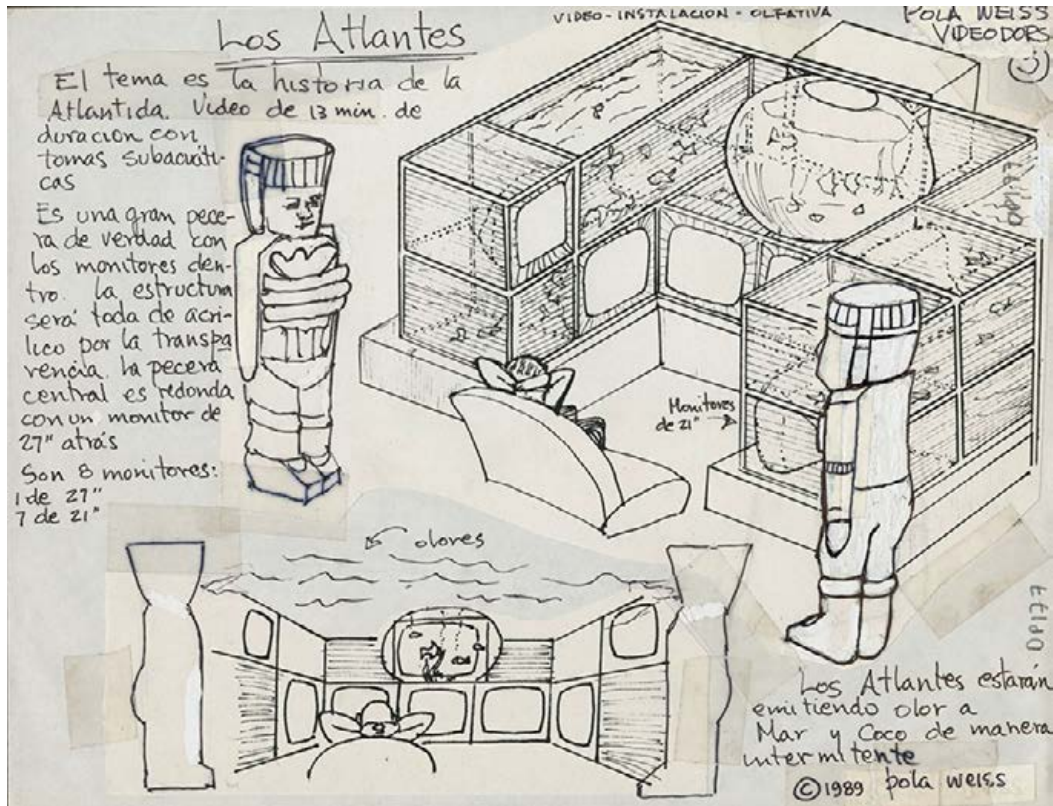 Los Atlantes
VIDEO-INSTALACION-OLFATIVA
POLA WEISS
VIDEODORS
El tema es la historia de la
Atlantida. Video de 13 min. de
duracion con
tomas subacuáti-
cas
Es una gran pece-
ra de verdad con
los monitores den-
tro. la estructura
será toda de acrí-
lico por la transpa
rencia. la pecera
central es redonda
con un monitor de
27" atrás
Son 8 monitores:
1 de 27"
7 de 21"
Monitores
de 21"
olores
Los Atlantes estarán
emitiendo olor a
Mar y Coco de manera
intermitente
©1989 pola weiss